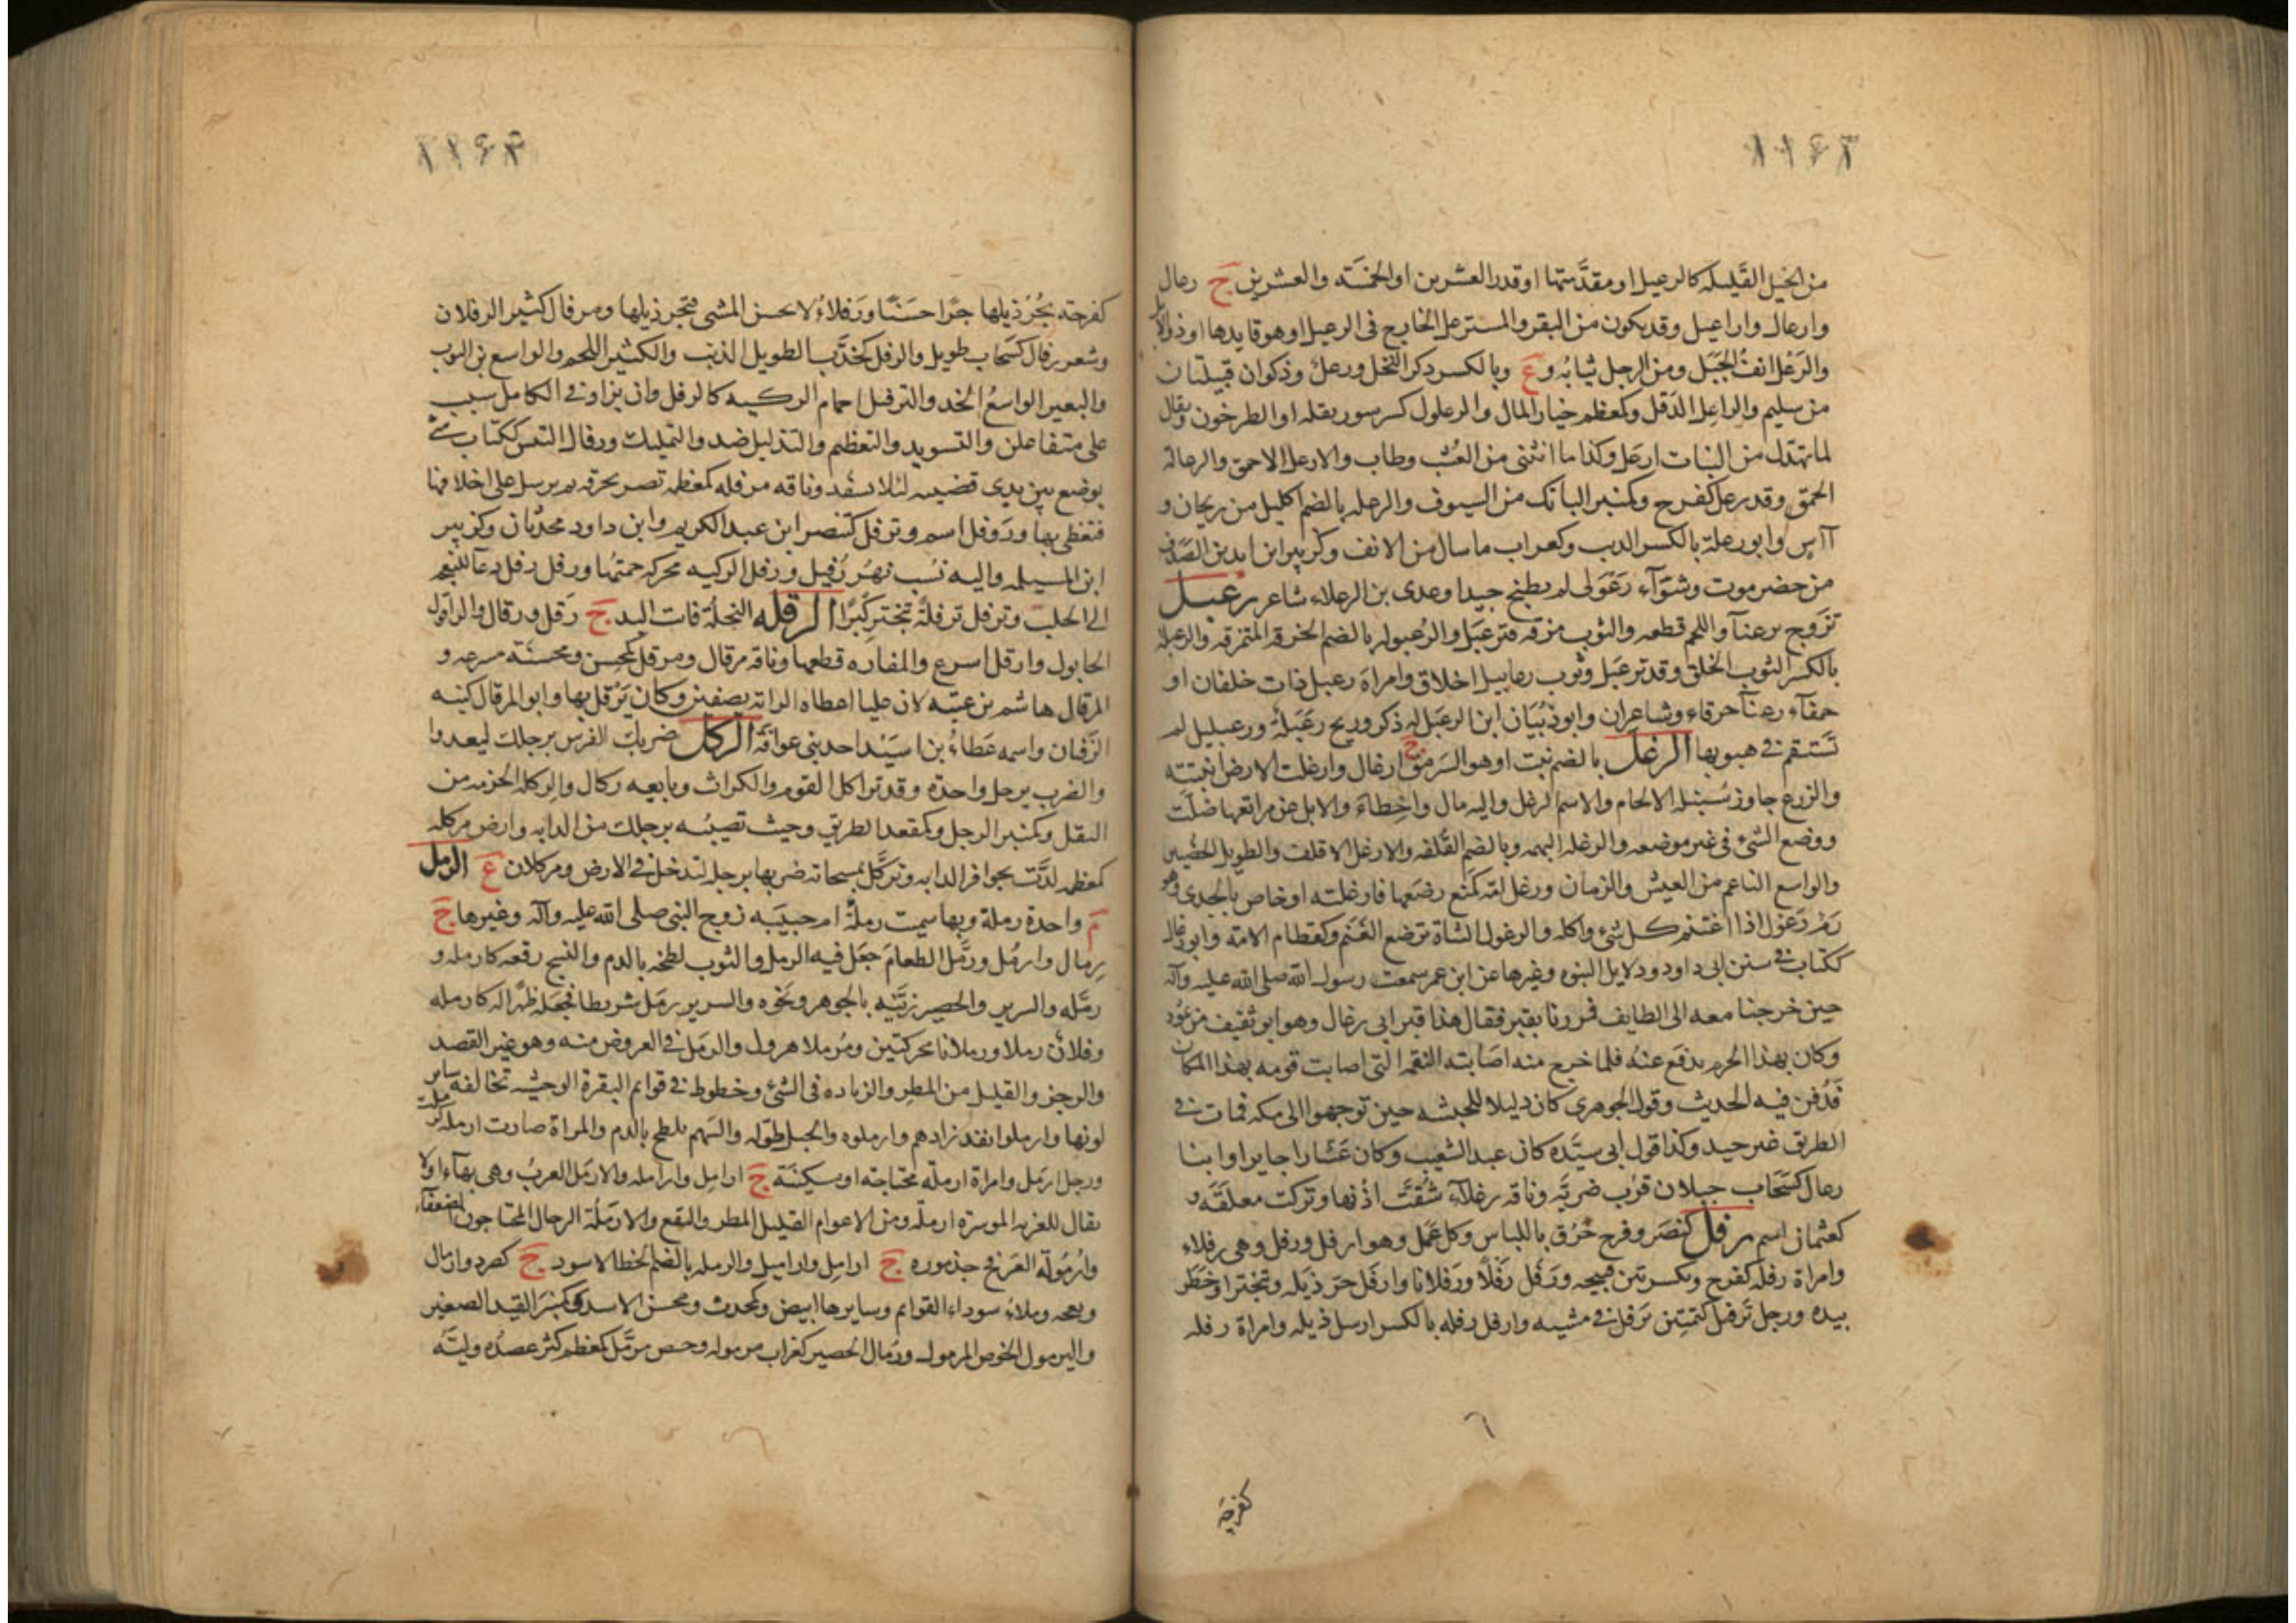 ١١۶٣
من الخيل القليله كالرعيل او مقدّمتها او قدر العشرين او الخمسَته والعشرين ج رعال
وارعال واراعيل وقد يكون من البقر والمسترعل الخارج فى الرعيل او هو قايدها او ذو الابل
والرَعْل انفُ الجَبَل ومن الرجل ثيابُه و ع وبالكسر ذكر النخل ورعل وذكوان قبيلتان
من سليم والراعِل الدَقل وكمعظم خيار المال والرعلول كسرسور بقله او الطرخون ويقال
لما تهدّل من النبات ارعل وكذا ما انثنى من العُشب وطاب والارعل الاحمق والرعالة
الحمق وقد رعل كفرح وكمنبر الباتك من السيوف والرعله بالضم اكليل من ريحان و
آآس وابو رعلة بالكسر الذيب وكغراب ما سال من الانف وكزبير ابن ابد بن الصَدف
من حضرموت وشوآء رَعْوَلى لم يطبخ جيدا وعدى بن الرعلاء شاعر رعبل
تزوج برعنآ واللحم قطعه والثوب مزقه فترعبَل والرُعبوله بالضم الخرقه المتمزقه والرعبلة
بالكسر الثوب الخلق وقد ترعبَل وثوب رعابيل اخلاق وامراة رعبل ذات خلقان او
حمقآء رعنآ خرقاء وشاعران وابو ذُبيَان ابن الرعبَل له ذكر وريح رَعْبَلة ورعبليل لم
تستقم فى هبوبها الرغل بالضم نبت او هو السَرمق ج ارغال وارغلت الارض انبتته
والزرع جاوز سُنبُله الالحام والاسم الرغل واليه مال واخطاء والابل عن مراتعها ضلّت
ووضع الشئ فى غير موضعه والرغله البهمه وبالضم القُلفه والارغل الاقلف والطويل الخصيين
والواسع الناعم من العيش والزمان ورغل امّه كمنَع رضَعها فارغلته او خاص بالجدى وهو
رَمّ رَغول اذا اغتنم كل شئ واكله والرغول الشاة ترضع الغَنَم وكقطام الامته وابو رغال
ككتاب فى سنن ابى داود ودلايل النبوه وغيرها عن ابن عمر سمعت رسول الله صلى الله عليه وآله
حين خرجنا معه الى الطايف فمررنا بقبر فقال هذا قبر ابى رغال وهو ابو ثقيف من ثمُود
وكان بهذا الحرم يدفع عنه فلما خرج منه اصَابته النقمه التى اصابت قومه بهذا المكان
فَدُفن فيه الحديث وقول الجوهرى كان دليلا للحبشه حين توجهوا الى مكه فمات فى
الطريق غير جيد وكذا قول ابن سيّده كان عبد الشعيب وكان عَشّارا جايرا وابنا
رعال كسَحَاب جبلان قرُب ضريّه وناقه رغلآء شُقّت اذُنها وتركت معلقَه و
كعثمان اسم رفل كنصَر وفرح خَرُق باللباس وكل عَمَل وهو ارفل ورفل وهى رفلاء
وامراة رفله كفرح وبكسرتين قبيحه ورَفَل رَفْلًا ورَفَلانا وارفَل جرّ ذَيله وتبختر او خَطَر
بيده ورجل تَرفيل كتمتين تَرفل فى مشيه وارفل رفله بالكسر ارسل ذيله وامراة رفله
كفرحة
١١۶۴
كفرحته تجُرّ ذيلها جرًّا حسَنًا ورَفلاءُ لا تحسن المشى فتجر ذيلها ومرفال كثير الرفلان
وشعر رفال كسَحَاب طويل والرفل كخدَبّ الطويل الذنب والكثير اللحم والواسع من الثوب
والبعير الواسعُ الجلد والترفيل اجمام الركيه كالرفل وان يزاد فى الكامل سبب
على متفاعلن والتسويد والتعظيم والتذليل ضد والتمليك ورفال التيس ككتاب شئ
يوضع بين يدى قضيبه لئلا يسفد وناقه مرفله كمعظمه تصر بخرقه ثم ترسل على اخلافها
فتغطى بها ورَوفل اسم وترفل كتنصر ابن عبد الكريم وابن داود محدثان وكزبير
ابن المسيلمه واليه نسُب نهَر رُفيل ورفل الركيه محركه جمتها ورفل رفل دعآ للنعجه
الى الحلب وترفل ترفلةً تبختر كِبْرًا الرقله النخلة فاتت اليد ج رَقل ورقال والراقول
الحابول وارقل اسرع والمفازه قطعها وناقه مرقال ومرقل كمحسن ومحسنَة مسرعه و
المرقال هاشم بن عتبه لان عليا اعطاه الراية بصفين وكان يَرُقل بها وابو المرقال كنيه
الزَفيان واسمه عَطاءُ بن اسَيْد احد بنى عوافَة الركل ضربك الفرس برجلك ليعدوا
والضرب برجل واحدة وقد تراكل القوم والكراث وبايعه ركال والركله الحزمه من
البقل وكمنبر الرجل وكمقعد الطريق وحيث تصيبُه برجلك من الدابه وارض مركله
كمعظمه لدّت بحوافر الدابه وتركَّل بمسحاته ضربها برجله لتدخل فى الارض ومركلان ع الرمل
م واحدة رملة وبها سميت رملةُ ام حبيبَه زوج النبى صلى الله عليه وآله وغيرها ج
رِمال وارمُل ورمَّل الطعَامَ جعَل فيه الرمل والثوب لطخه بالدم والنسج رقعه كارمله و
رمّله والسرير والحصير زيّنه بالجوهر ونَحْوه والسرير رمَل شريطا فجعَله ظهْرًا له كارمله
وفلانٌ رملا ورملانا محركتين ومُرملا هرول والرمَل فى العروض منه وهو غير القصيد
والرجز والقليل من المطر والزياده فى الشئ وخطوط فى قوايم البقرة الوحشيه تخالفه ساير
لونها وارملوا نفد زادهم وارملوه والحبل طوّله والسَهم تلطخ بالدم والمراة صارت ارملة كرملت
ورجل ارمَل وامراة ارملة محتاجته او مسكينَة ج ارامِل وارامله والارمَل العزبُ وهى بهآء او لا
يقال للعزبه الموسرة ارملة ومن الاعوام القليل المطر والنفع والارمَلُة الرجال المحتاجون الضعفآء
وارْمُولة العَرفج جذموره ج ارامِل واراميل والرمله بالضم الخط الاسود ج كصرد وارمال
ونعجه رملاءُ سوداء القوايم وسايرها ابيض وكمحدث ومحسن الاسد وكمنبَر القيد الصغير
واليرمول الخوص المرمول ورُمال الحصير كغراب مرموله وخبيص مرمّل كمعظم كثر عصدُه وليّه